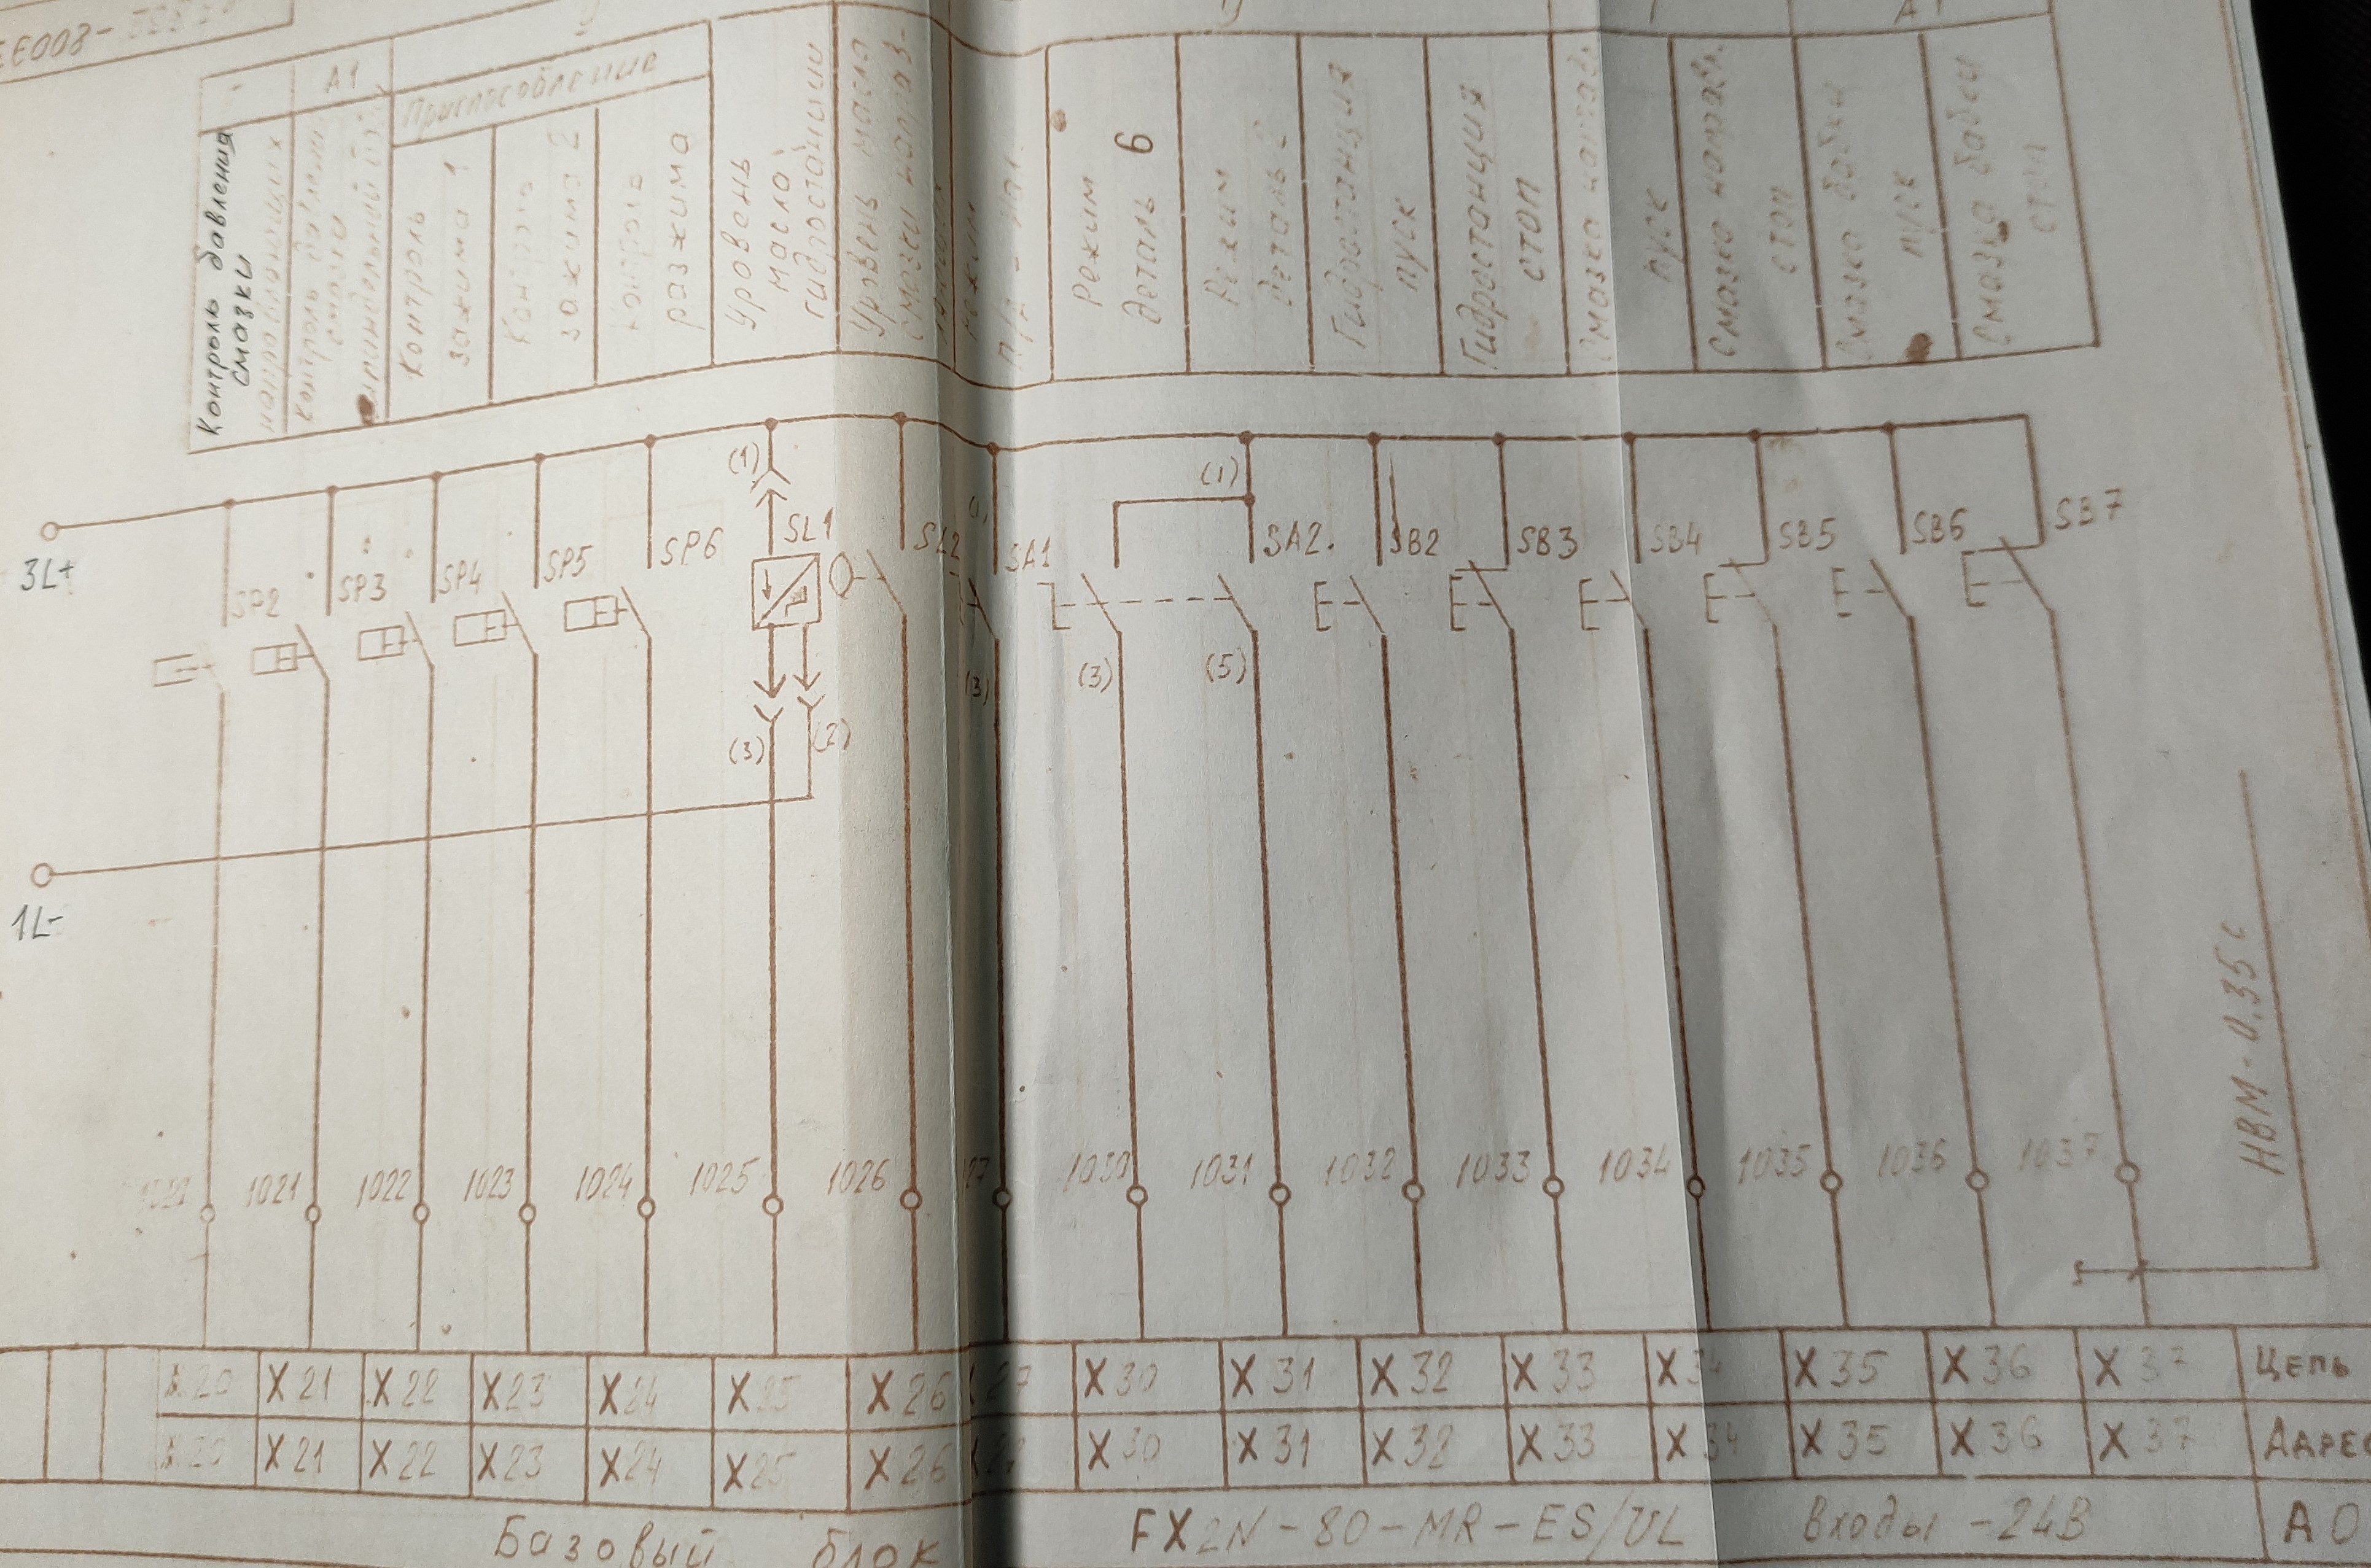 A1
Приспособление
Контроль давления
смазки
направляющих
Контроль
смазки
Контроль
зажима 1
Контроль
зажима 2
контроль
разжима
Уровень
масла
гидростанции
Уровень масла
смазки направ-
Режим
Режим
деталь 6
Режим
деталь 2
Гидростанция
пуск
Гидростанция
стоп
Смазка направ.
пуск
Смазка направ.
стоп
Смазка бабки
пуск
Смазка бабки
стоп
3L+
1L-
SP2
SP3
SP4
SP5
SP6
(1)
SL1
(3)
(2)
SL2
SA1
(3)
(1)
SA2.
(3)
(5)
SB2
SB3
SB4
SB5
SB6
SB7
НВМ-0,35с
1021
1022
1023
1024
1025
1026
27
1030
1031
1032
1033
1034
1035
1036
1037
X20 X21 X22 X23 X24 X25 X26 27 X30 X31 X32 X33 X34 X35 X36 X37 Цепь
X20 X21 X22 X23 X24 X25 X26 27 X30 X31 X32 X33 X34 X35 X36 X37
Базовый блок FX2N-80-MR-ES/UL Входы -24В